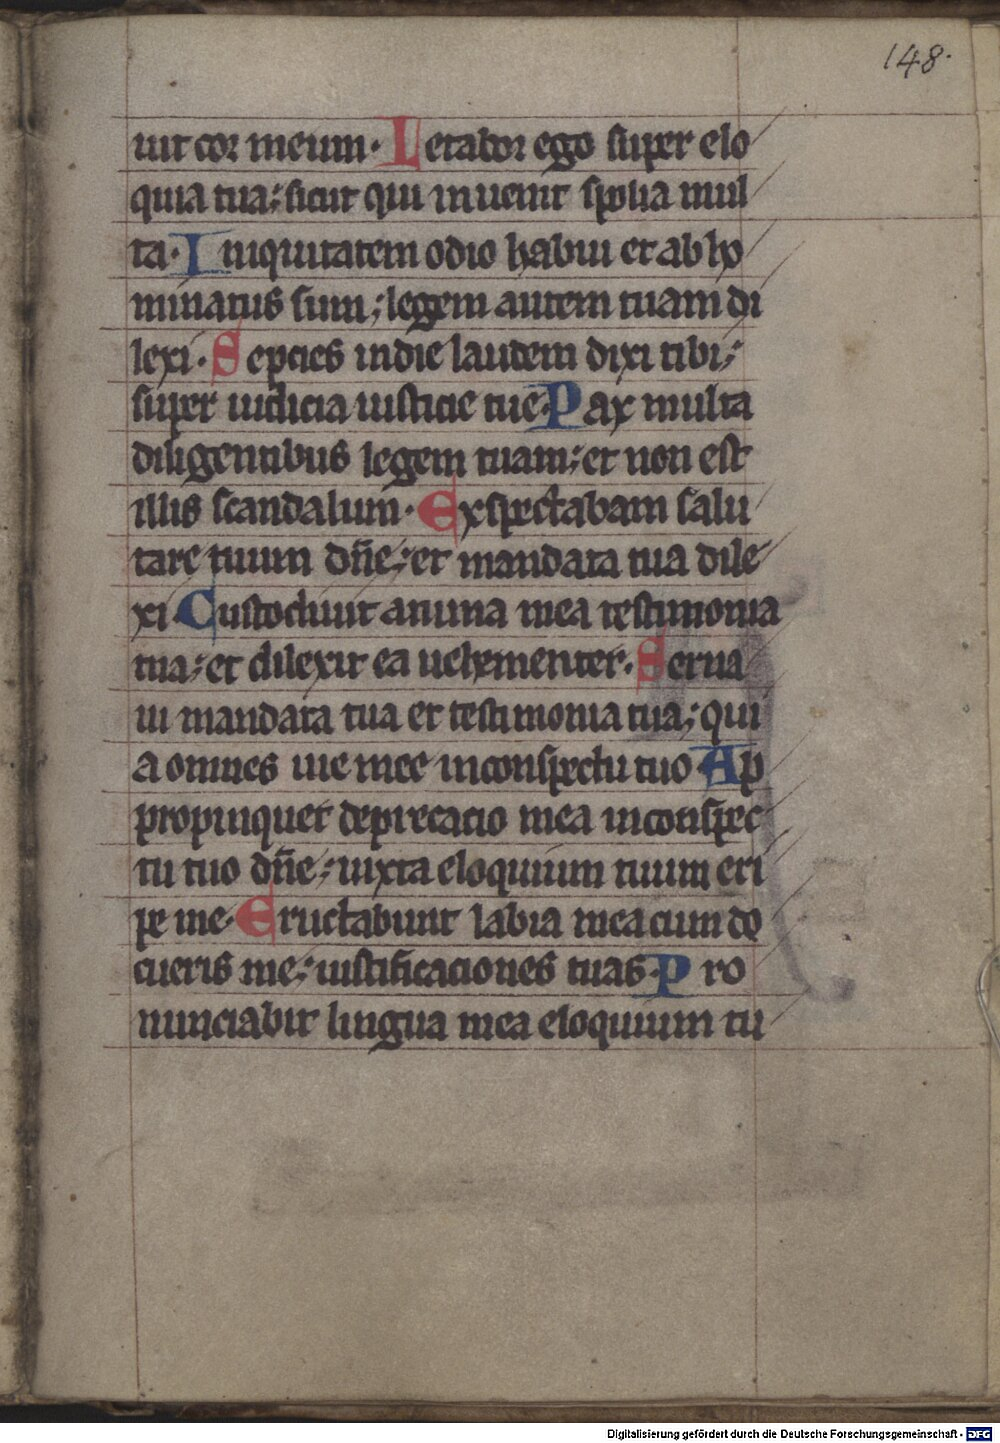 148.
uit cor meum. Letabor ego super elo
quia tua: sicut qui inuenit spolia mul
ta. Iniquitatem odio habui et abho
minatus sum; legem autem tuam di
lexi. Sepcies in die laudem dixi tibi;
super iudicia iusticie tue. Pax multa
diligentibus legem tuam; et non est
illis scandalum. Exspectabam salu
tare tuum dñe; et mandata tua dile
xi Custodiuit anima mea testimonia
tua; et dilexit ea uehementer. Serua
ui mandata tua et testimonia tua; qui
a omnes uie mee in conspectu tuo Ap
propinquet deprecacio mea in conspec
tu tuo dñe; iuxta eloquium tuum eri
pe me. Eructabunt labia mea cum do
cueris me; iustificaciones tuas. Pro
nunciabit lingua mea eloquium tu
Digitalisierung gefördert durch die Deutsche Forschungsgemeinschaft - DFG